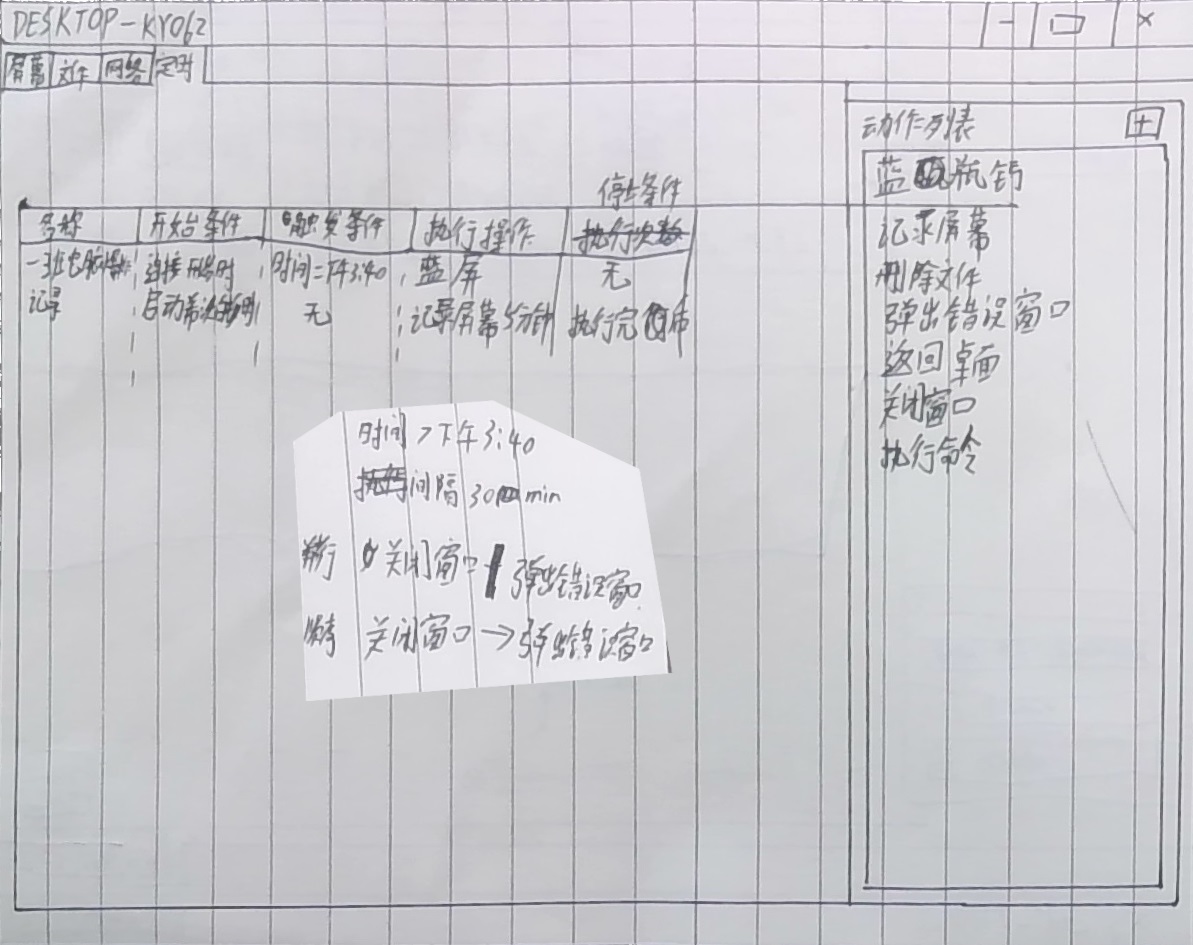 DESKTOP-KY062
屏幕 文件 网络 定时
动作列表
蓝瓶钙
记录屏幕
删除文件
弹出错误窗口
返回桌面
关闭窗口
执行命令
停止条件
名称 开始条件 触发条件 执行操作 执行次数
一班电脑 连接 时 时间=下午3:40 蓝屏 无
记录 启动 无 记录屏幕5分钟 执行完
时间>下午3:40
间隔30min
并行 关闭窗口 弹出错误窗口
顺序 关闭窗口→弹出错误窗口